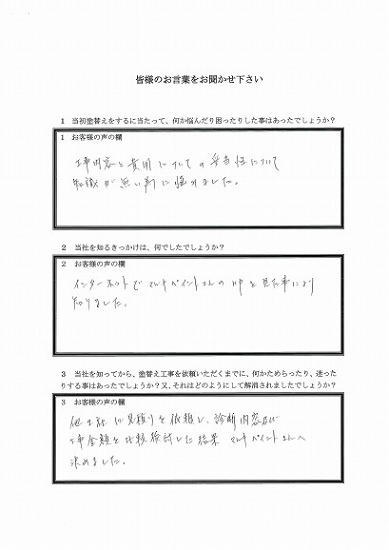 皆様のお言葉をお聞かせ下さい
1 当初塗替えをするに当たって、何か悩んだり困ったりした事はあったでしょうか?
1 お客様の声の欄
工事内容と費用についての妥当性について
知識が無い事に悩みました。
2 当社を知るきっかけは、何でしたでしょうか?
2 お客様の声の欄
インターネットでマルキペイントさんのHPを見た事により
知りました。
3 当社を知ってから、塗替え工事を依頼いただくまでに、何かためらったり、迷った
りする事はあったでしょうか?又、それはどのようにして解消されましたでしょうか?
3 お客様の声の欄
他社に見積りを依頼し、診断内容並びに
工事金額を比較検討した結果 マルキペイントさんへ
決めました。